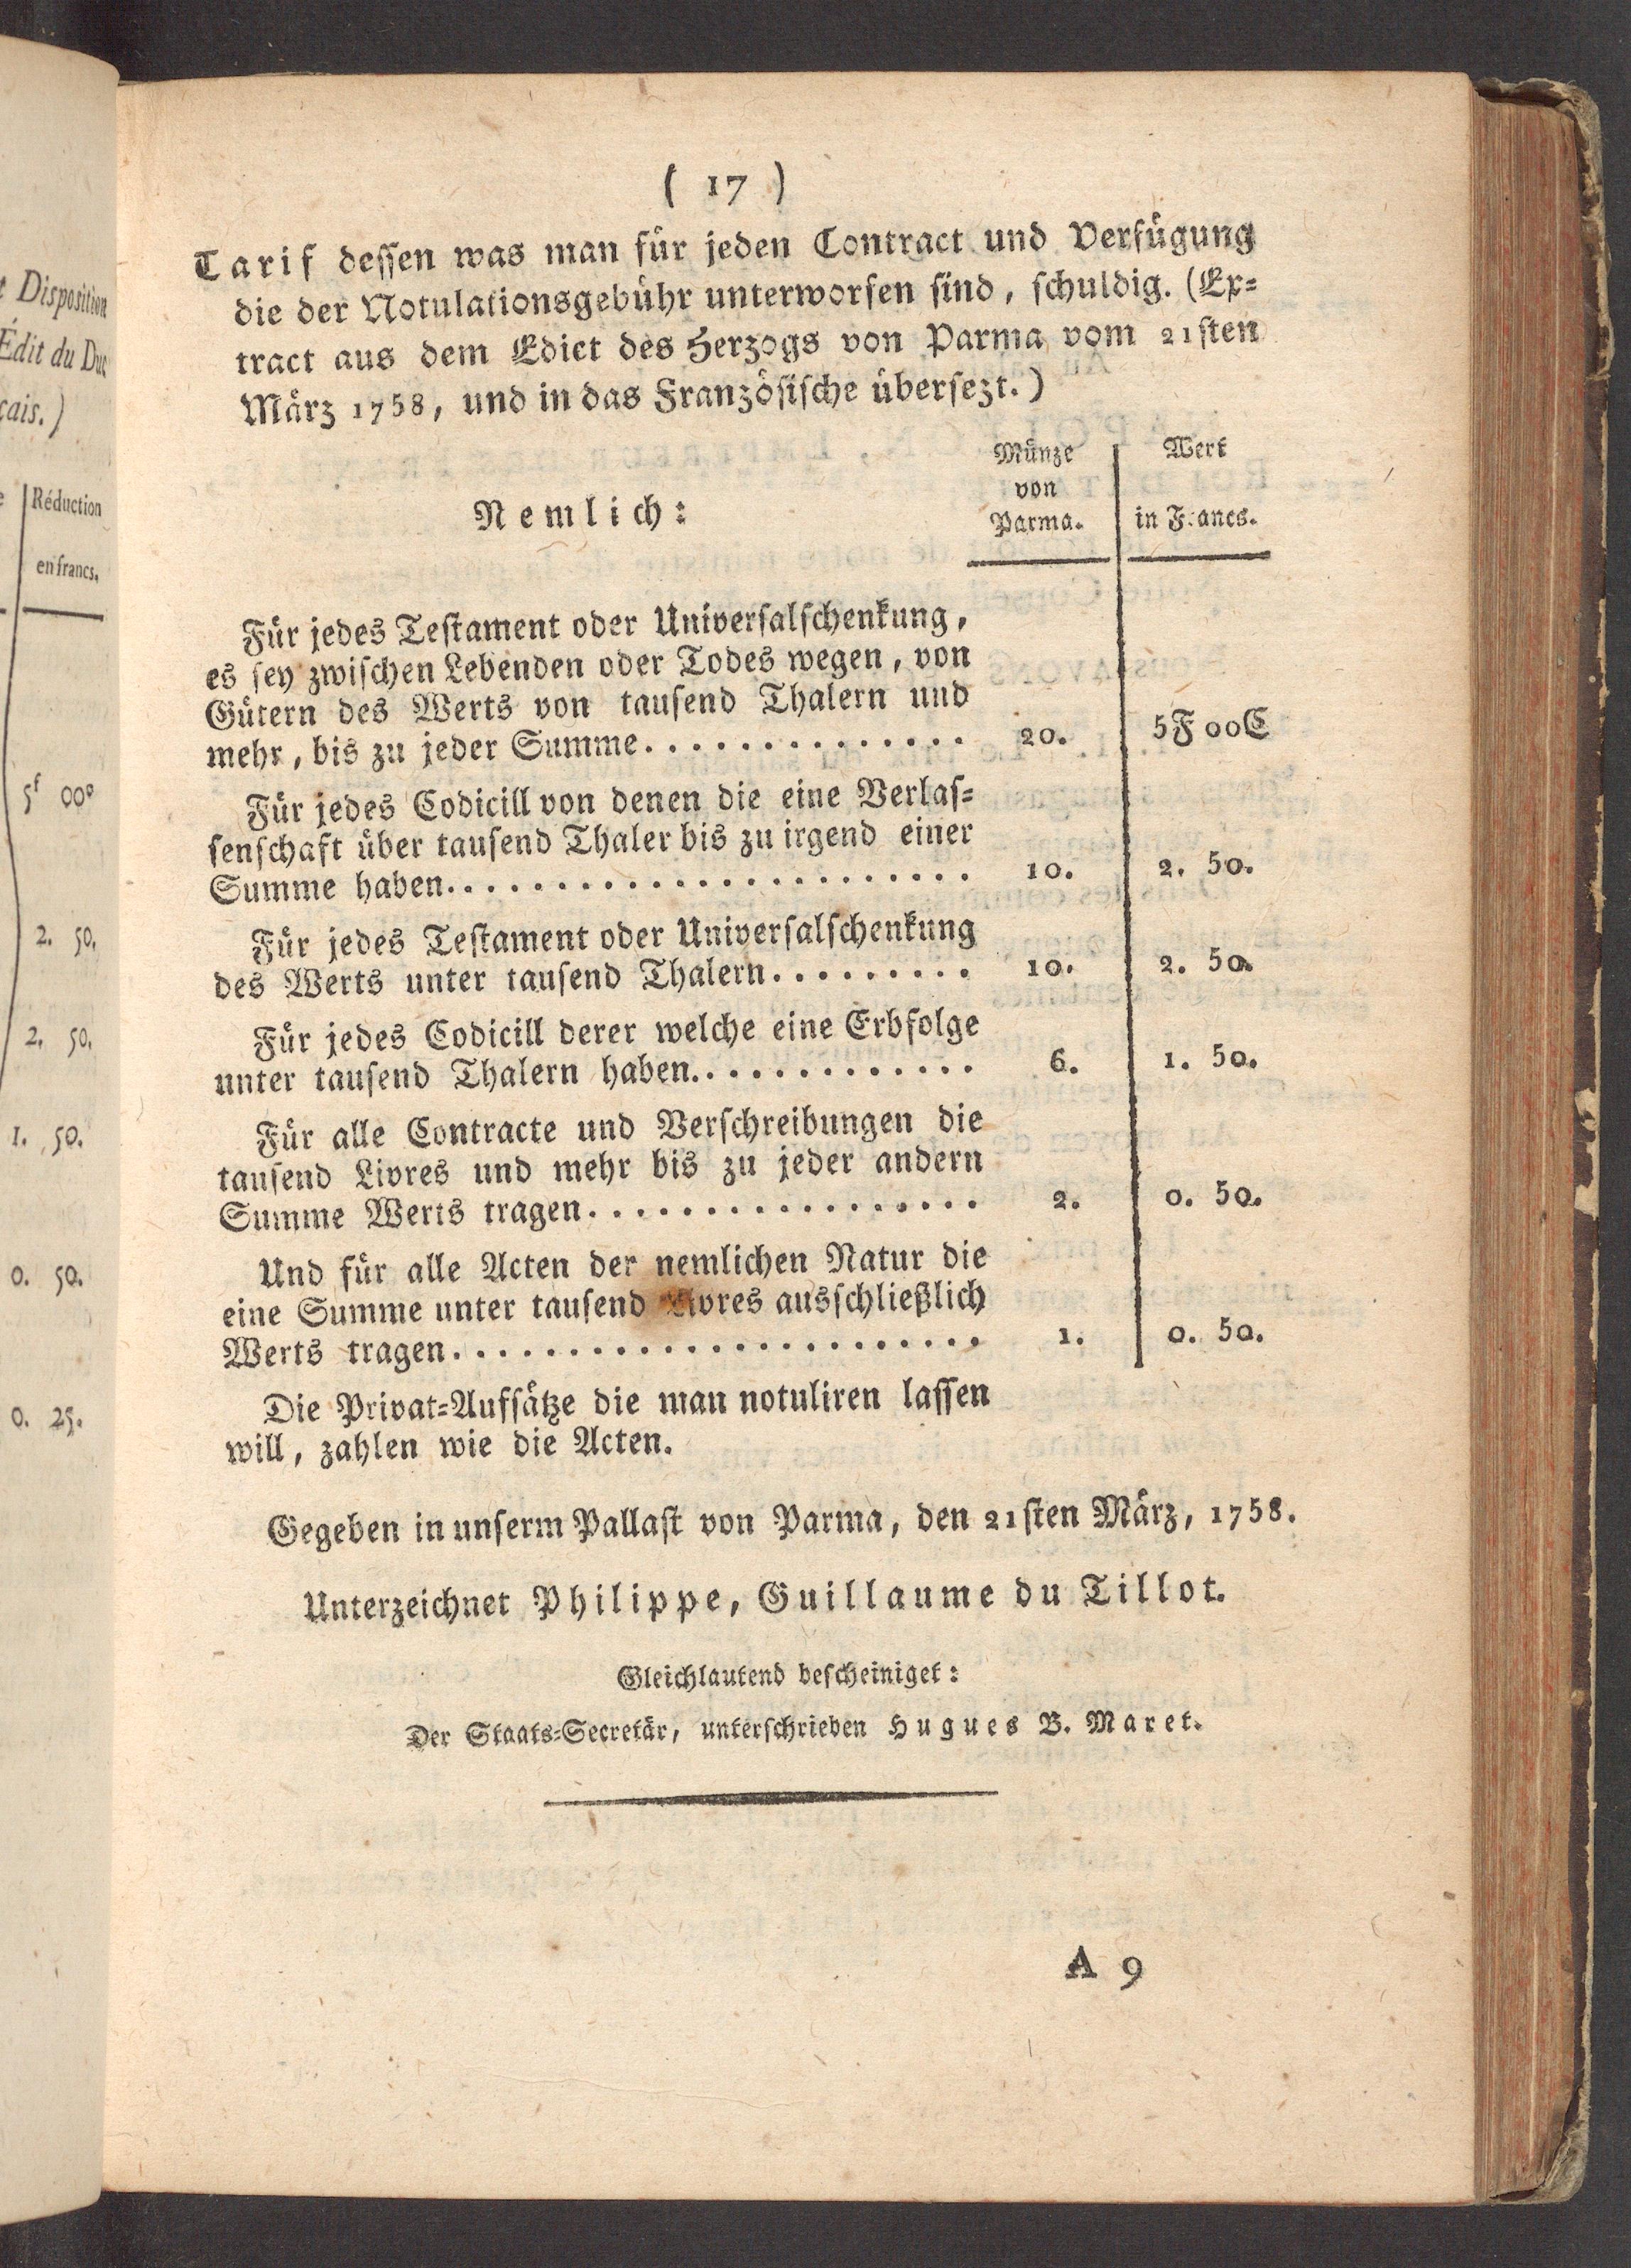 t Disposition
Édit du Duc
çais.)
e | Réduction
en francs.
5f 00c
2. 50.
2. 50.
1. 50.
0. 50.
0. 25.
( 17 )
Tarif dessen was man für jeden Contract und Verfügung
die der Notulationsgebühr unterworfen sind, schuldig. (Ex=
tract aus dem Edict des Herzogs von Parma vom 21sten
März 1758, und in das Französische übersezt.)
Münze | Wert
von
Nemlich: Parma. | in Francs.
Für jedes Testament oder Universalschenkung,
es sey zwischen Lebenden oder Todes wegen, von
Gütern des Werts von tausend Thalern und
mehr, bis zu jeder Summe.............. 20. | 5F 00C
Für jedes Codicill von denen die eine Verlas=
senschaft über tausend Thaler bis zu irgend einer
Summe haben....................... 10. | 2. 50.
Für jedes Testament oder Universalschenkung
des Werts unter tausend Thalern......... 10. | 2. 50.
Für jedes Codicill derer welche eine Erbfolge
unter tausend Thalern haben............. 6. | 1. 50.
Für alle Contracte und Verschreibungen die
tausend Livres und mehr bis zu jeder andern
Summe Werts tragen................. 2. | 0. 50.
Und für alle Acten der nemlichen Natur die
eine Summe unter tausend Livres ausschließlich
Werts tragen....................... 1. | 0. 50.
Die Privat=Aufsätze die man notuliren lassen
will, zahlen wie die Acten.
Gegeben in unserm Pallast von Parma, den 21sten März, 1758.
Unterzeichnet Philippe, Guillaume du Tillot.
Gleichlautend bescheiniget:
Der Staats=Secretär, unterschrieben Hugues B. Maret.
A 9